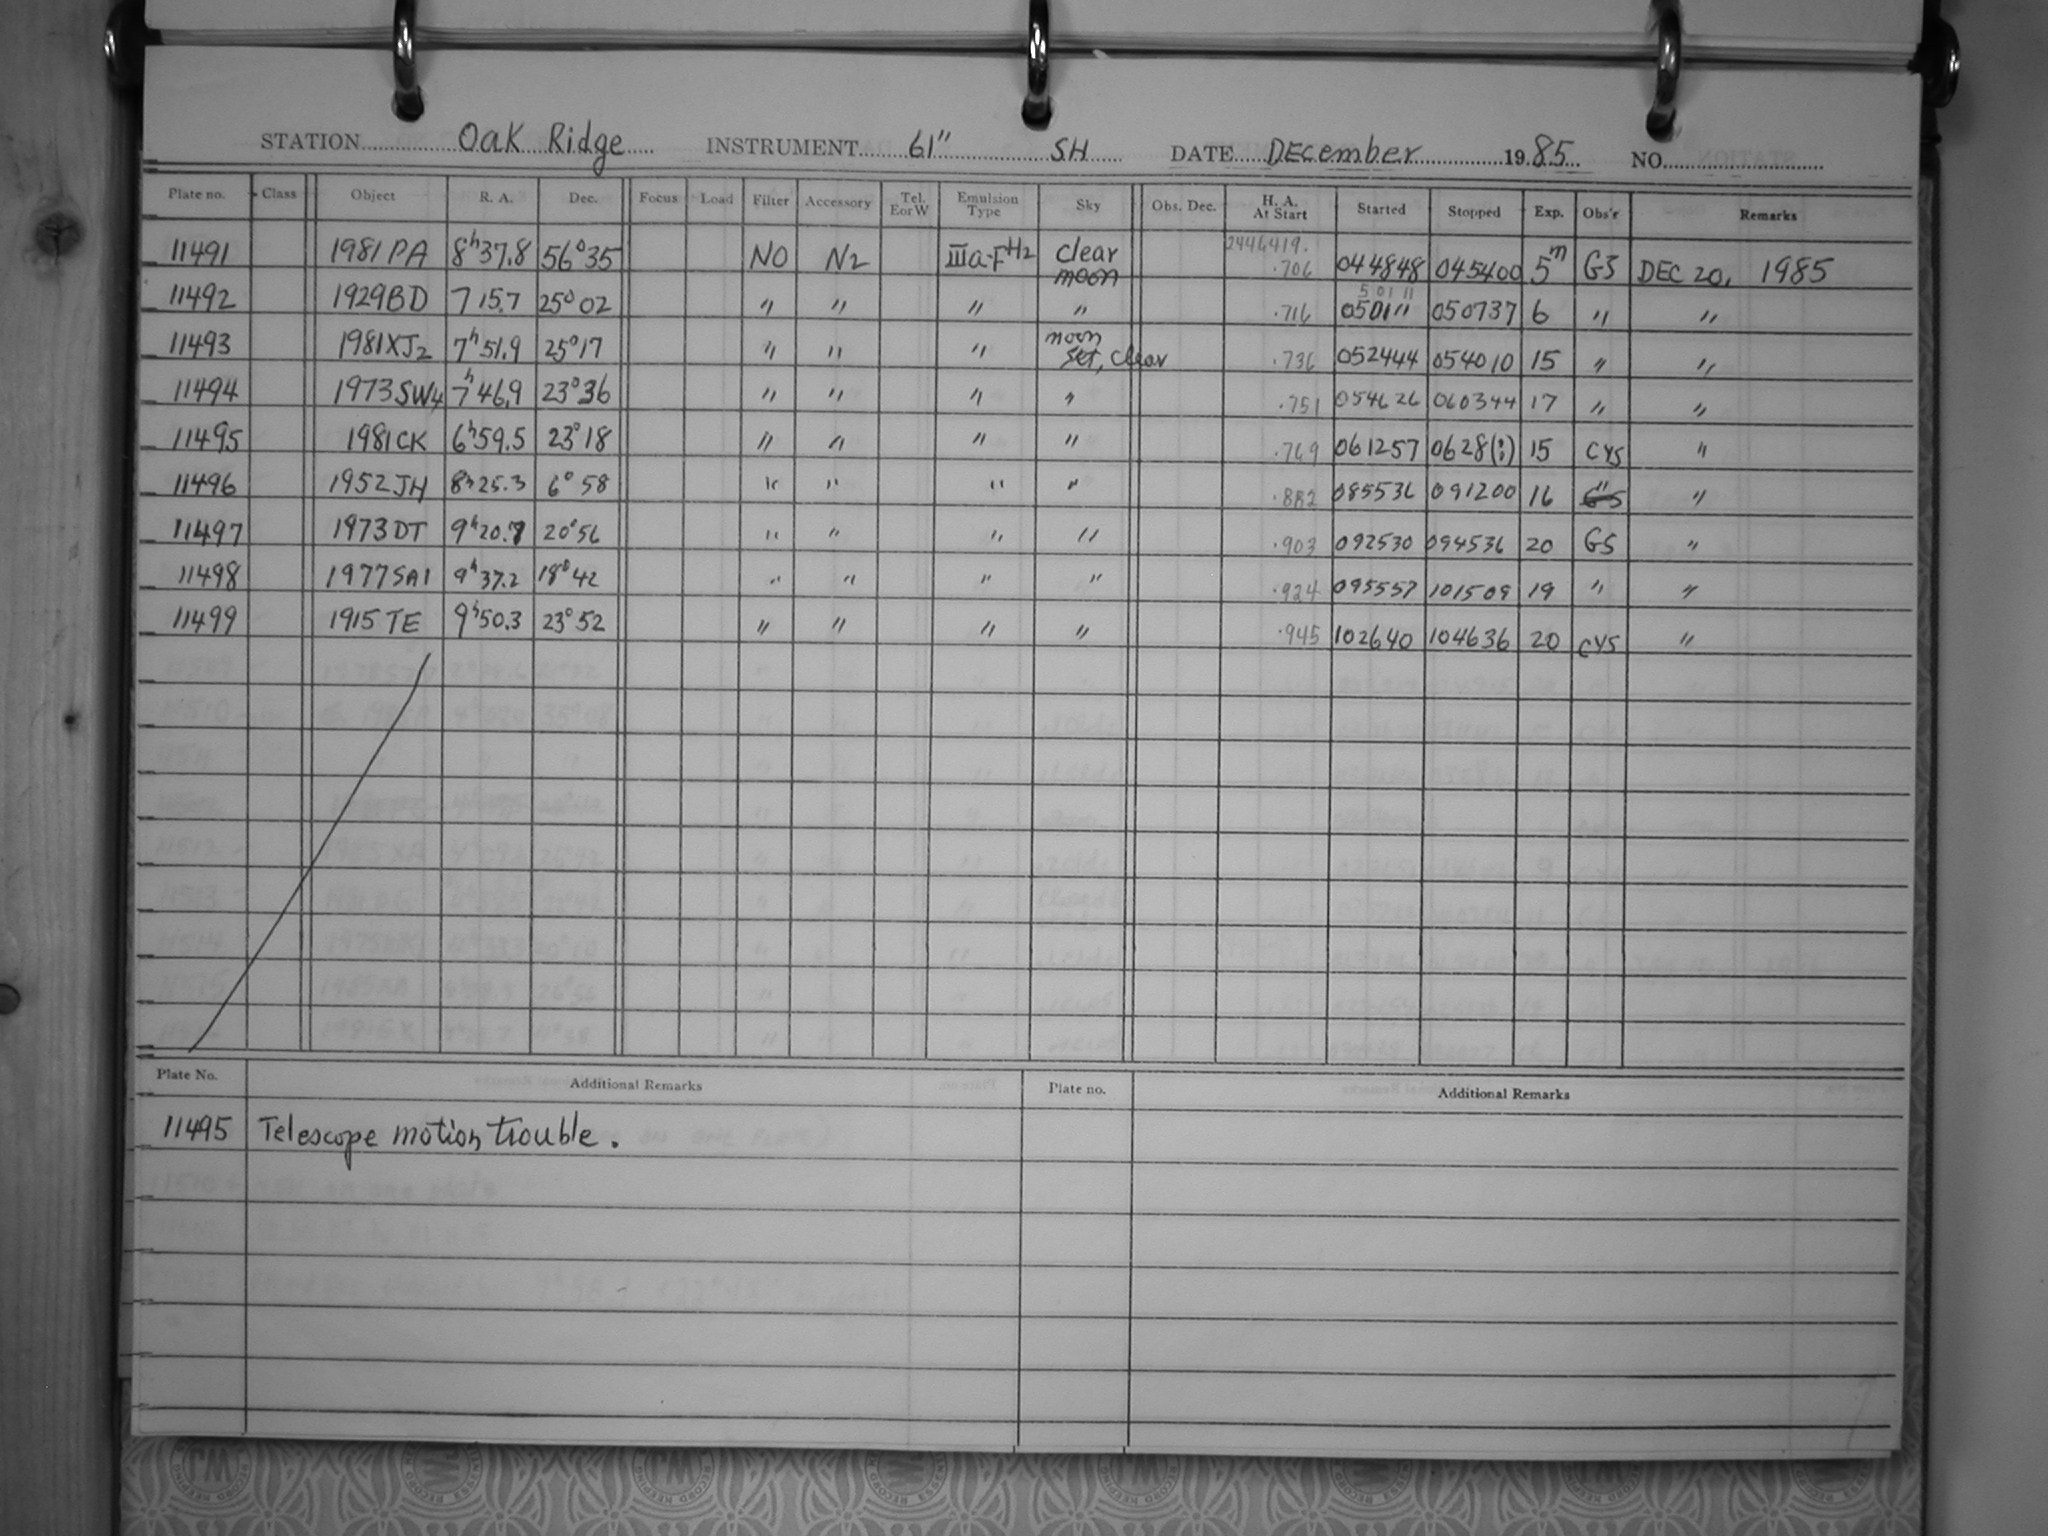 STATION Oak Ridge INSTRUMENT 61" SH DATE December 1985 NO.
Plate no. Class Object R. A. Dec. Focus Load Filter Accessory Tel. E or W Emulsion Type Sky Obs. Dec. H. A. At Start Started Stopped Exp. Obs'r Remarks
11491 1981 PA 8h37.8 56°35 NO N2 IIIa-F H2 clear moon 2446419. .706 044848 045400 5m GS DEC 20, 1985
11492 1929BD 7 15.7 25°02 " " " " .716 5 01 11 050111 050737 6 " "
11493 1981XJ2 7h51.9 25°17 " " " moon set, clear .736 052444 054010 15 " "
11494 1973SW4 7h46.9 23°36 " " " " .751 054626 060344 17 " "
11495 1981CK 6h59.5 23°18 " " " " .769 061257 0628(:) 15 CYS "
11496 1952JH 8h25.3 6°58 " " " " .882 085536 091200 16 " "
11497 1973DT 9h20.7 20°56 " " " " .903 092530 094536 20 GS "
11498 1977SA1 9h37.2 18°42 " " " " .924 095557 101509 19 " "
11499 1915TE 9h50.3 23°52 " " " " .945 102640 104636 20 CYS "
Plate No. Additional Remarks Plate no. Additional Remarks
11495 Telescope motion trouble.